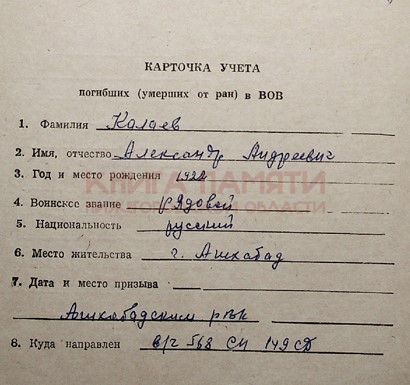 КАРТОЧКА УЧЕТА
погибших (умерших от ран) в ВОВ
1. Фамилия Калаев
2. Имя, отчество Александр Андреевич
3. Год и место рождения 1922
КНИГА ПАМЯТИ
4. Воинское звание рядовой
НИЖЕГОРОДСКОЙ ОБЛАСТИ
5. Национальность русский
6. Место жительства г. Ашхабад
7. Дата и место призыва
Ашхабадским рвк
8. Куда направлен в/ч 568 СП 149 СД